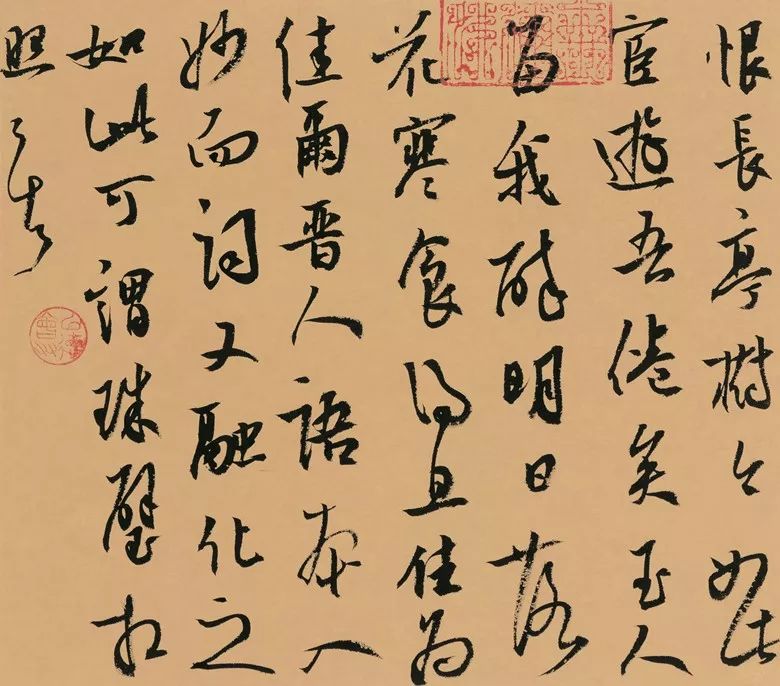 恨長亭樹今如此
宦遊吾倦矣玉人
留我醉明日落
花寒食得且住為
佳爾晉人語本入
妙而詞又融化之
如此可謂珠璧相
照